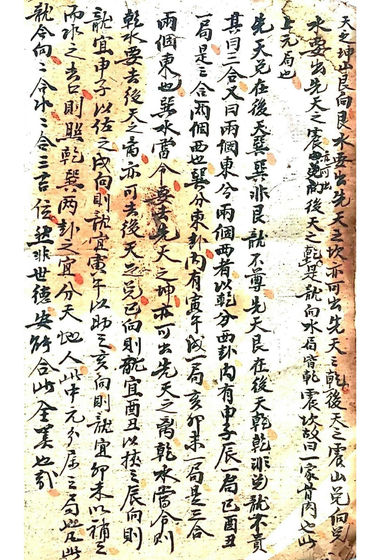 天之坤山艮向艮水要出先天之坎亦可出先天之乾後天之震山兌向兌
水要出先天之震亦可出後天之乾是龍向水局皆乾震坎故曰一家骨肉也此
上元局也
先天兌在後天巽巽非艮龍不尊先天艮在後天乾乾非兌龍不貴
其曰三合又曰兩個東兮兩個西者以乾分西卦內有申子辰一局巳酉丑
一局是三合兩個西也巽分東卦內有寅午戌一局亥卯未一局是三合
兩個東也巽水當令要去先天之坤亦可出先天之離乾水當令則
乾水要去後天之离亦可去後天之兌巳向則龍宜酉丑以扶之辰向則
龍宜申子以佐之戌向則龍宜寅午以助之亥向則龍宜卯未以補之
而水之去口則照乾巽兩卦之宜分天地人此中元分屬之局也此
龍合向二合水二合三吉位然非世德安能合此全美也哉